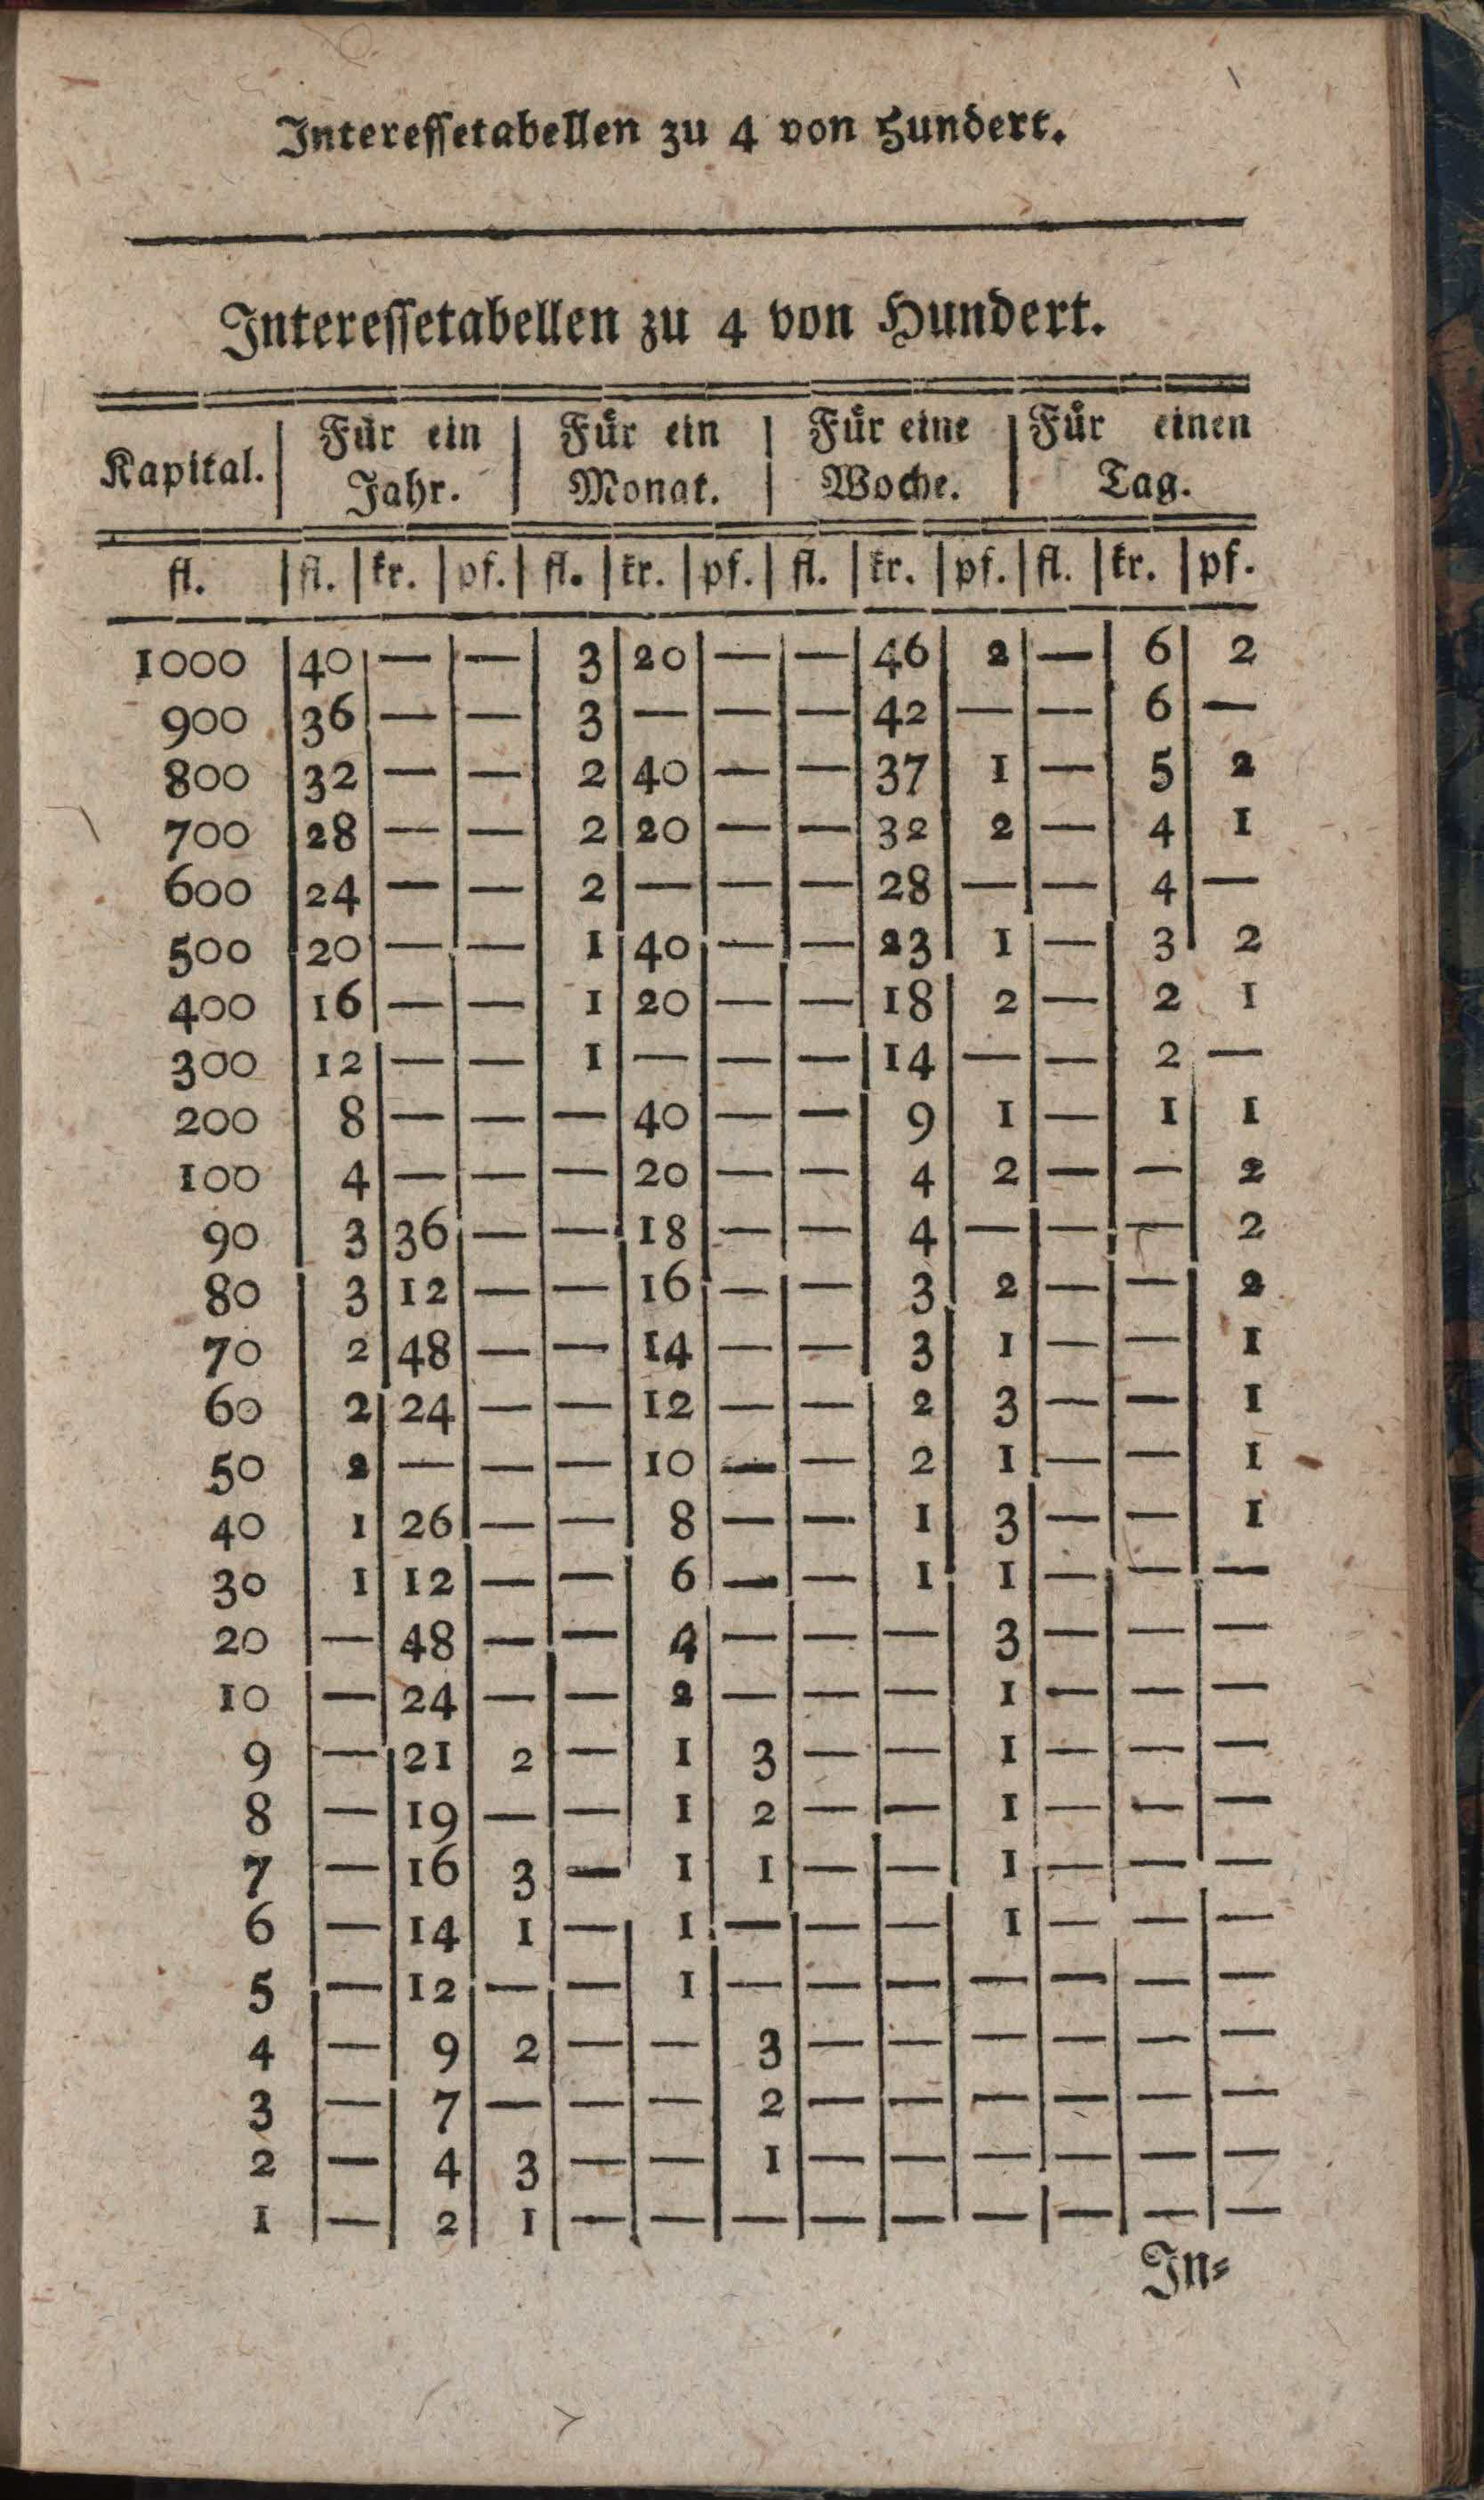 Interessetabellen zu 4 von Hundert.
Interessetabellen zu 4 von Hundert.
Kapital. | Für ein Jahr. | Für ein Monat. | Für eine Woche. | Für einen Tag.
fl. | fl. | kr. | pf. | fl. | kr. | pf. | fl. | kr. | pf. | fl. | kr. | pf.
1000 | 40 | — | — | 3 | 20 | — | — | 46 | 2 | — | 6 | 2
900 | 36 | — | — | 3 | — | — | — | 42 | — | — | 6 | —
800 | 32 | — | — | 2 | 40 | — | — | 37 | 1 | — | 5 | 2
700 | 28 | — | — | 2 | 20 | — | — | 32 | 2 | — | 4 | 1
600 | 24 | — | — | 2 | — | — | — | 28 | — | — | 4 | —
500 | 20 | — | — | 1 | 40 | — | — | 23 | 1 | — | 3 | 2
400 | 16 | — | — | 1 | 20 | — | — | 18 | 2 | — | 2 | 1
300 | 12 | — | — | 1 | — | — | — | 14 | — | — | 2 | —
200 | 8 | — | — | — | 40 | — | — | 9 | 1 | — | 1 | 1
100 | 4 | — | — | — | 20 | — | — | 4 | 2 | — | — | 2
90 | 3 | 36 | — | — | 18 | — | — | 4 | — | — | — | 2
80 | 3 | 12 | — | — | 16 | — | — | 3 | 2 | — | — | 2
70 | 2 | 48 | — | — | 14 | — | — | 3 | 1 | — | — | 1
60 | 2 | 24 | — | — | 12 | — | — | 2 | 3 | — | — | 1
50 | 2 | — | — | — | 10 | — | — | 2 | 1 | — | — | 1
40 | 1 | 26 | — | — | 8 | — | — | 1 | 3 | — | — | 1
30 | 1 | 12 | — | — | 6 | — | — | 1 | 1 | — | — | —
20 | — | 48 | — | — | 4 | — | — | — | 3 | — | — | —
10 | — | 24 | — | — | 2 | — | — | — | 1 | — | — | —
9 | — | 21 | 2 | — | 1 | 3 | — | — | 1 | — | — | —
8 | — | 19 | — | — | 1 | 2 | — | — | 1 | — | — | —
7 | — | 16 | 3 | — | 1 | 1 | — | — | 1 | — | — | —
6 | — | 14 | 1 | — | 1 | — | — | — | 1 | — | — | —
5 | — | 12 | — | — | 1 | — | — | — | — | — | — | —
4 | — | 9 | 2 | — | — | 3 | — | — | — | — | — | —
3 | — | 7 | — | — | — | 2 | — | — | — | — | — | —
2 | — | 4 | 3 | — | — | 1 | — | — | — | — | — | —
1 | — | 2 | 1 | — | — | — | — | — | — | — | — | —
In⸗